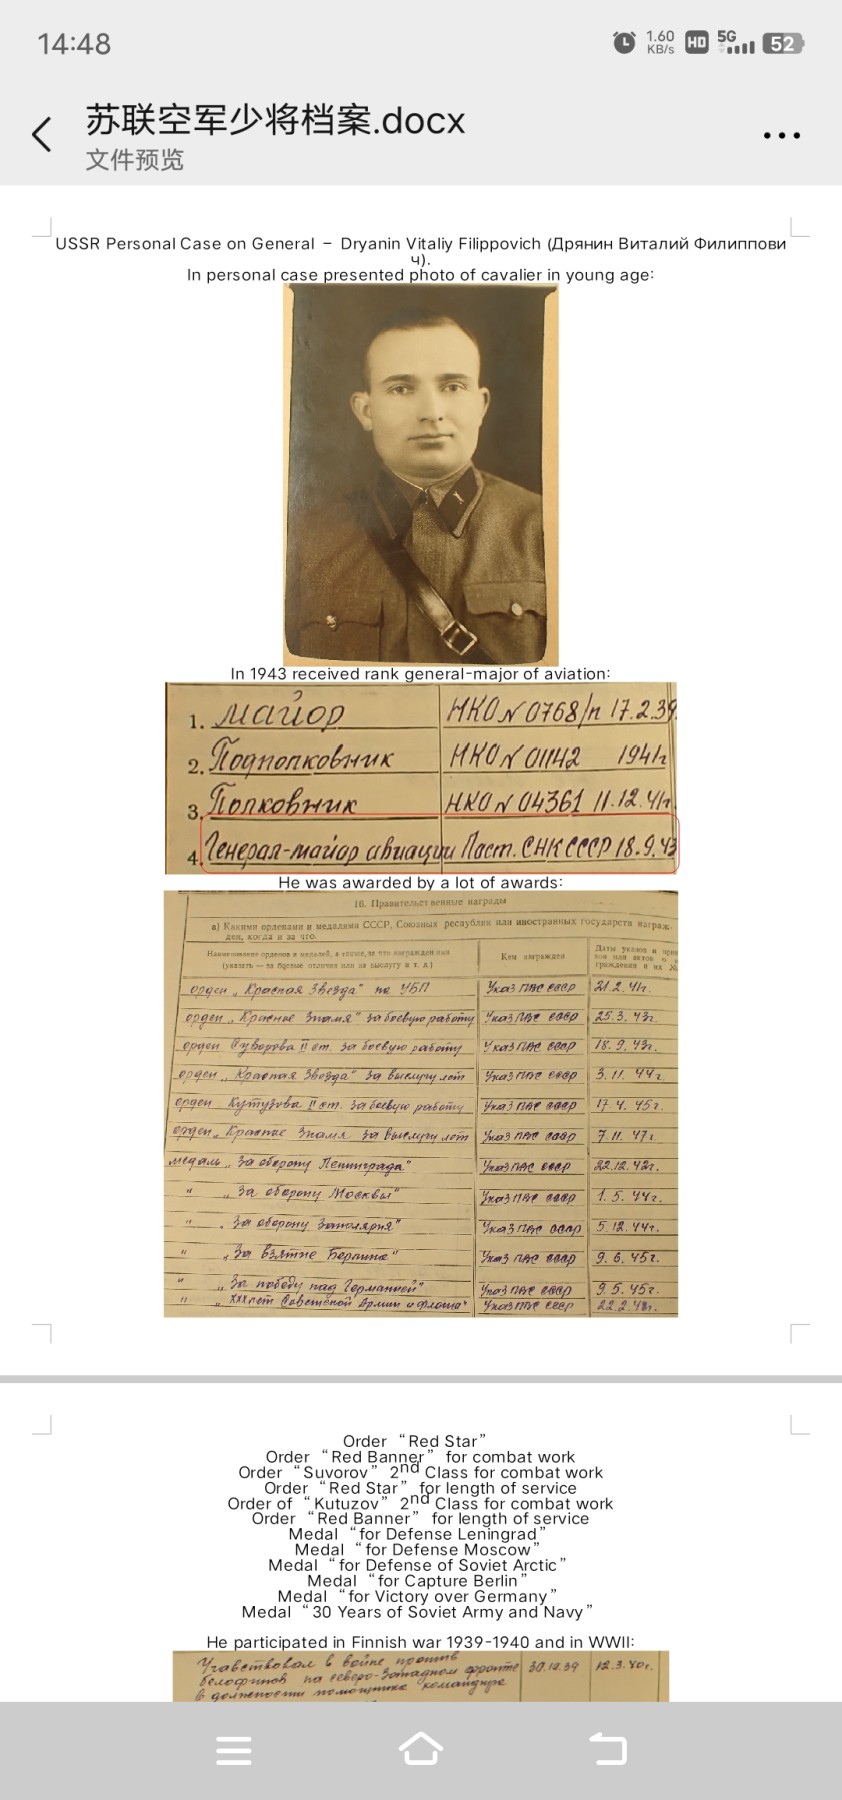 14:48
1.60 KB/s HD 5G 52
苏联空军少将档案.docx
文件预览
USSR Personal Case on General – Dryanin Vitaliy Filippovich (Дрянин Виталий Филиппови
ч).
In personal case presented photo of cavalier in young age:
In 1943 received rank general-major of aviation:
1. майор НКО N 0768/п 17.2.39
2. Подполковник НКО N 01142 1941г
3. Полковник НКО N 04361 11.12.41г.
4. Генерал-майор авиации Пост. СНК СССР 18.9.43
He was awarded by a lot of awards:
16. Правительственные награды
а) Какими орденами и медалями СССР, Союзных республик или иностранных государств награж-
ден, когда и за что.
Наименование орденов и медалей, а также, за что награжден ими
(указать — за боевые отличия или за выслугу и т. д.)
Кем награжден
Даты указов и
орден „Красная Звезда" по УБП Указ ПВС СССР 21.2.41г.
орден „Красное Знамя" за боевую работу Указ ПВС СССР 25.3.43г.
орден Суворова II ст. за боевую работу Указ ПВС СССР 18.9.43г.
орден „Красная Звезда" за выслугу лет Указ ПВС СССР 3.11.44г.
орден Кутузова II ст. за боевую работу Указ ПВС СССР 17.4.45г.
орден „Красное Знамя за выслугу лет Указ ПВС СССР 7.11.47г.
медаль „За оборону Ленинграда" Указ ПВС СССР 22.12.42г.
" „За оборону Москвы" Указ ПВС СССР 1.5.44г.
" „За оборону Заполярия" Указ ПВС СССР 5.12.44г.
" „За взятие Берлина" Указ ПВС СССР 9.6.45г.
" „За победу над Германией" Указ ПВС СССР 9.5.45г.
" „XXX лет Советской Армии и флота" Указ ПВС СССР 22.2.48г.
Order “Red Star”
Order “Red Banner” for combat work
Order “Suvorov” 2nd Class for combat work
Order “Red Star” for length of service
Order of “Kutuzov” 2nd Class for combat work
Order “Red Banner” for length of service
Medal “for Defense Leningrad”
Medal “for Defense Moscow”
Medal “for Defense of Soviet Arctic”
Medal “for Capture Berlin”
Medal “for Victory over Germany”
Medal “30 Years of Soviet Army and Navy”
He participated in Finnish war 1939-1940 and in WWII:
Участвовал в войне против
белофинов на северо-западном фронте 30.12.39 12.3.40г.
в должности помощника командира